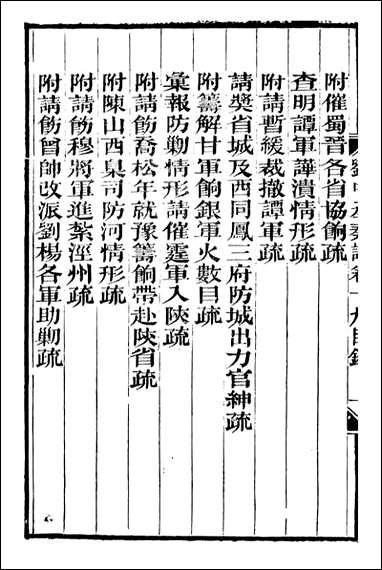 劉中丞奏議卷十九目錄
附催蜀晉各省協餉疏
查明譚軍譁潰情形疏
附請暫緩裁撤譚軍疏
請奬省城及西同鳳三府防城出力官紳疏
附籌解甘軍餉銀軍火數目疏
彙報防勦情形請催霆軍入陝疏
附請飭喬松年就豫籌餉帶赴陝省疏
附陳山西臬司防河情形疏
附請飭穆將軍進紮涇州疏
附請飭曾帥改派劉楊各軍助勦疏